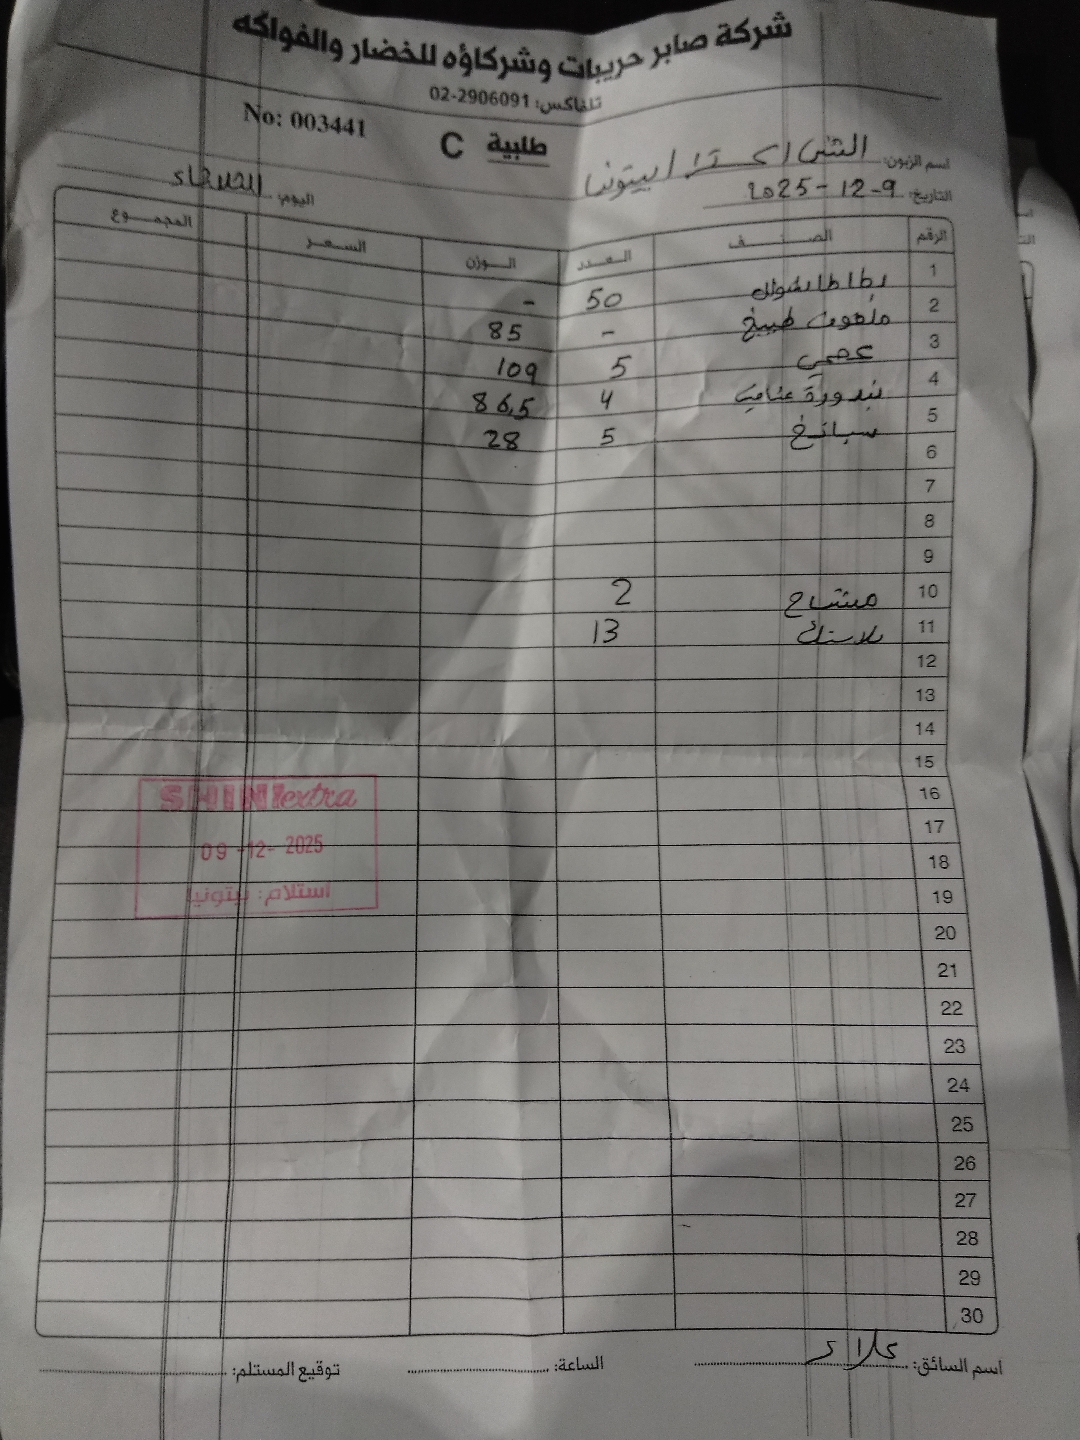 شركة صابر حريبات وشركاؤه للخضار والفواكه
تلفاكس: 02-2906091
No: 003441
طلبية C
اسم الزبون: الشني اكسترا / بيتونيا
التاريخ: 9-12-2025
اليوم: الثلاثاء
الرقم الصنف العدد الوزن السعر المجموع
1 بطاطا شوال 50 -
2 ملفوف طبيخ - 85
3 5 109
4 بندورة عناقيد 4 86.5
5 سبانخ 5 28
6
7
8
9
10 مشتاح 2
11 بلاستك 13
12
13
14
15
16
17
18
19
20
21
22
23
24
25
26
27
28
29
30
SHINI extra
09-12-2025
استلام: بيتونيا
اسم السائق: علاء
الساعة:
توقيع المستلم: